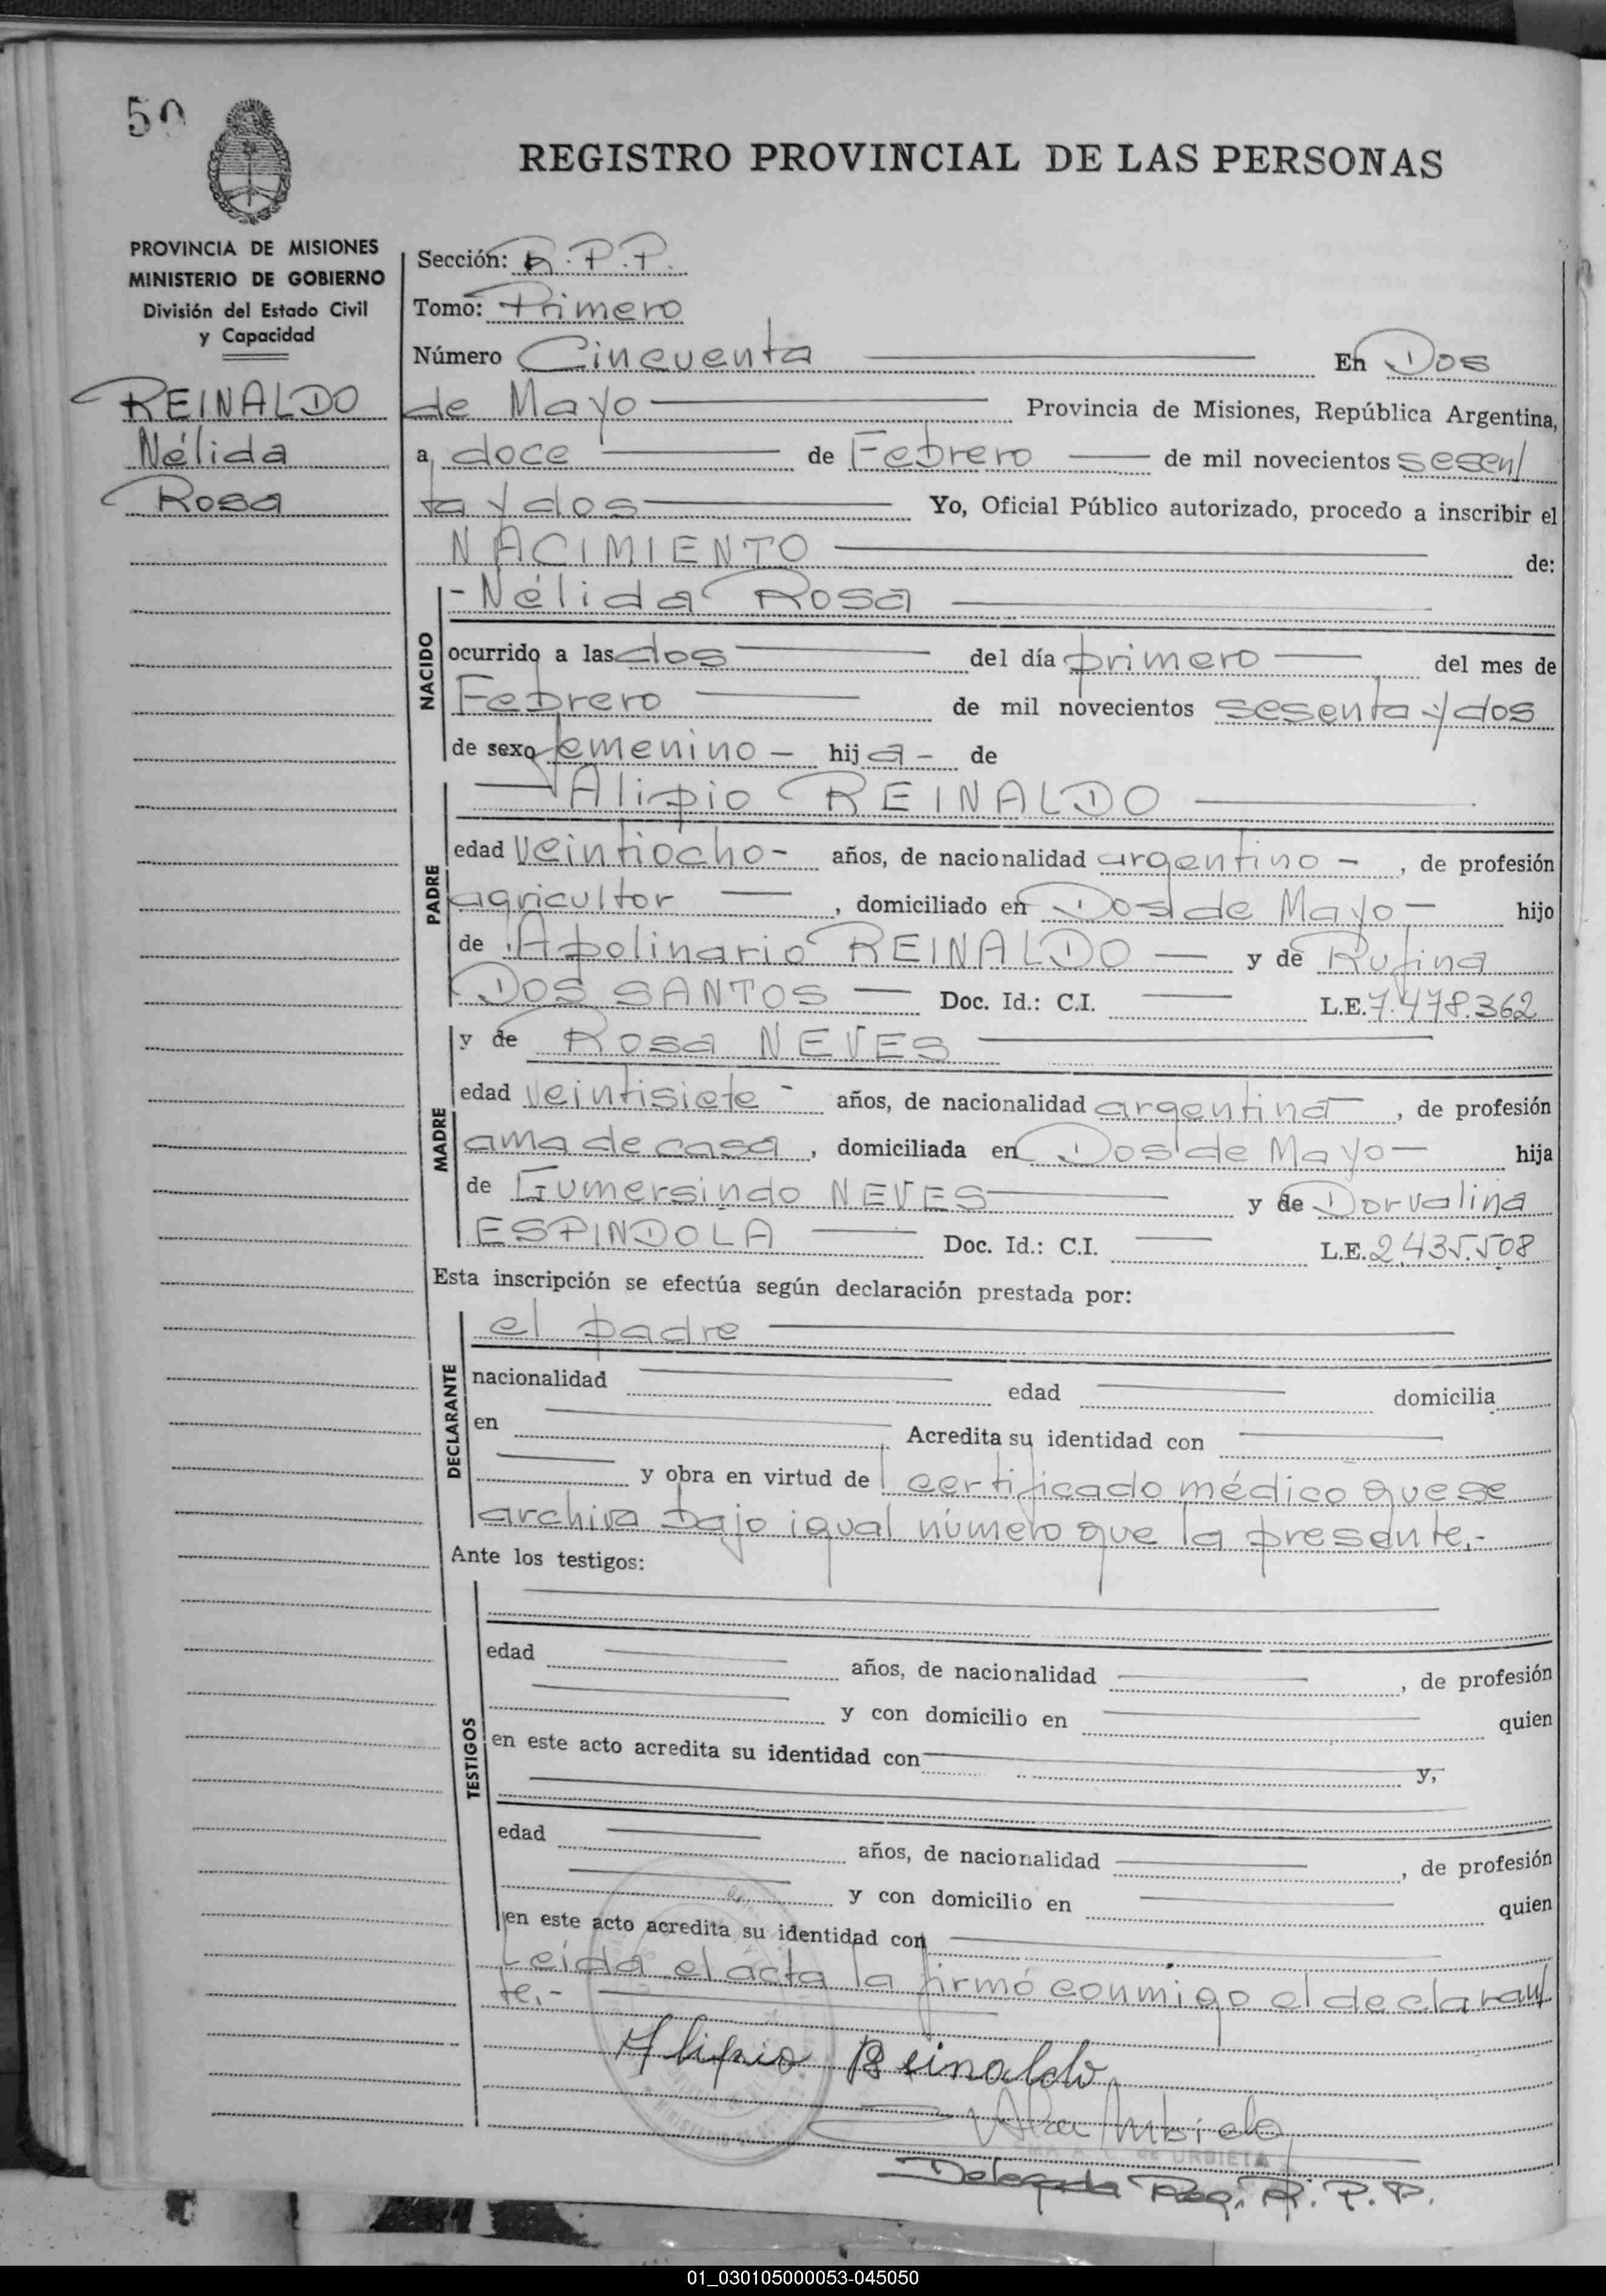 50
REGISTRO PROVINCIAL DE LAS PERSONAS
PROVINCIA DE MISIONES
MINISTERIO DE GOBIERNO
División del Estado Civil
y Capacidad
REINALDO
Nélida
Rosa
Sección: R.P.P.
Tomo: Primero
Número Cincuenta En Dos
de Mayo Provincia de Misiones, República Argentina,
a doce de Febrero de mil novecientos sesen/
ta y dos Yo, Oficial Público autorizado, procedo a inscribir el
NACIMIENTO de:
NACIDO
- Nélida Rosa
ocurrido a las dos del día primero del mes de
Febrero de mil novecientos sesenta y dos
de sexo femenino - hij a - de
PADRE
Alipio REINALDO
edad veintiocho - años, de nacionalidad argentino - , de profesión
agricultor , domiciliado en Dos de Mayo - hijo
de Apolinario REINALDO y de Rufina
DOS SANTOS Doc. Id.: C.I. L.E. 7.478.362
MADRE
y de Rosa NEVES
edad veintisiete - años, de nacionalidad argentina , de profesión
ama de casa , domiciliada en Dos de Mayo - hija
de Gumersindo NEVES y de Dorvalina
ESPINDOLA Doc. Id.: C.I. L.E. 2.435.508
Esta inscripción se efectúa según declaración prestada por:
DECLARANTE
el padre
nacionalidad edad domicilia
en Acredita su identidad con
y obra en virtud del certificado médico que se
archiva bajo igual número que la presente.-
Ante los testigos:
TESTIGOS
edad años, de nacionalidad , de profesión
y con domicilio en quien
en este acto acredita su identidad con y,
edad años, de nacionalidad , de profesión
y con domicilio en quien
en este acto acredita su identidad con
Leída el acta la firmó conmigo el declaran/
te.-
Alipio Reinaldo
DE URBIETA
Delegada Reg. R. P. P.
01_030105000053-045050